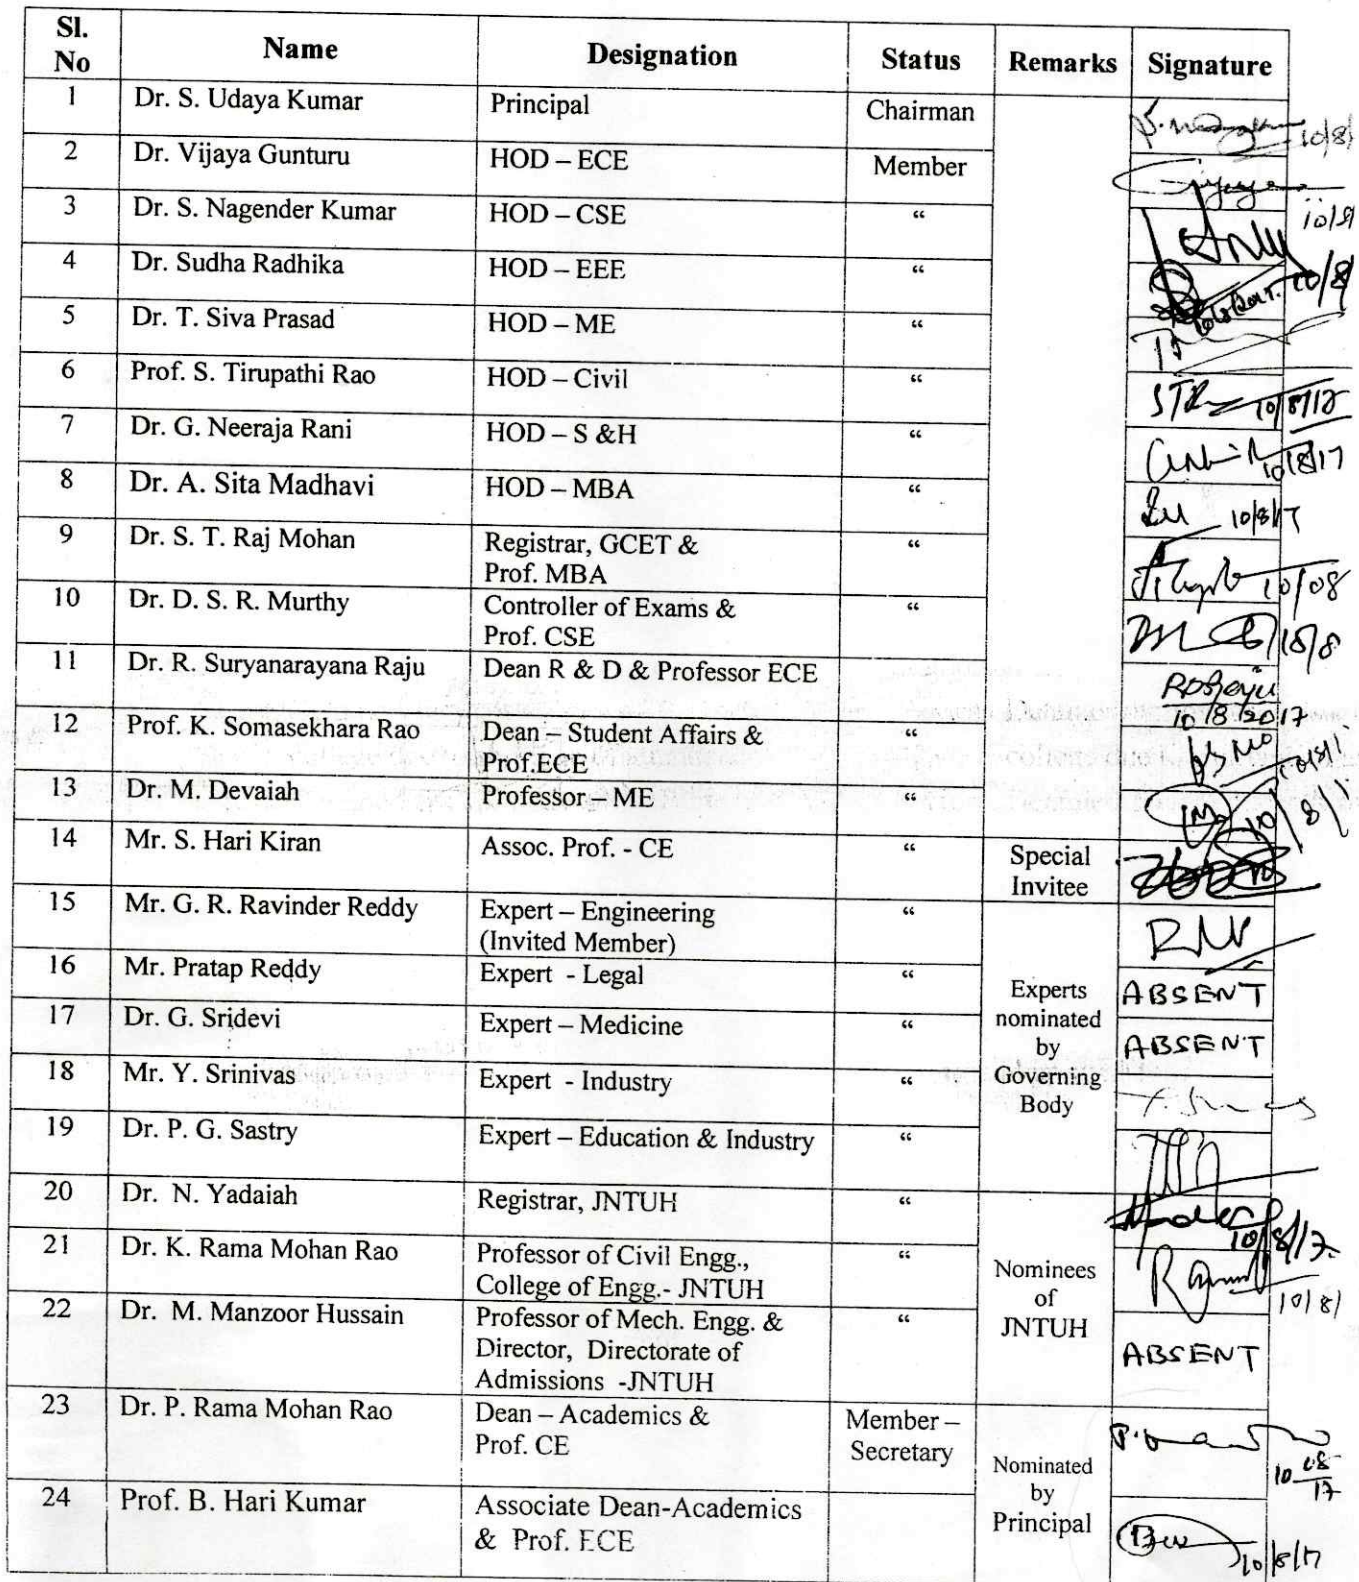 Sl. No Name Designation Status Remarks Signature
1 Dr. S. Udaya Kumar Principal Chairman 10/8/
2 Dr. Vijaya Gunturu HOD – ECE Member 10/8/
3 Dr. S. Nagender Kumar HOD – CSE “ 10/8/
4 Dr. Sudha Radhika HOD – EEE “
5 Dr. T. Siva Prasad HOD – ME “
6 Prof. S. Tirupathi Rao HOD – Civil “ 10/8/17
7 Dr. G. Neeraja Rani HOD – S &H “ 10/8/17
8 Dr. A. Sita Madhavi HOD – MBA “ 10/8/17
9 Dr. S. T. Raj Mohan Registrar, GCET & “ 10/08
Prof. MBA
10 Dr. D. S. R. Murthy Controller of Exams & “ 10/8
Prof. CSE
11 Dr. R. Suryanarayana Raju Dean R & D & Professor ECE
10/8/2017
12 Prof. K. Somasekhara Rao Dean – Student Affairs & “
Prof.ECE
13 Dr. M. Devaiah Professor – ME “ 10/8/
14 Mr. S. Hari Kiran Assoc. Prof. - CE “ Special
Invitee
15 Mr. G. R. Ravinder Reddy Expert – Engineering “
(Invited Member)
16 Mr. Pratap Reddy Expert - Legal “ Experts ABSENT
17 Dr. G. Sridevi Expert – Medicine “ nominated
by ABSENT
18 Mr. Y. Srinivas Expert - Industry “ Governing
Body
19 Dr. P. G. Sastry Expert – Education & Industry “
20 Dr. N. Yadaiah Registrar, JNTUH “ 10/8/17
21 Dr. K. Rama Mohan Rao Professor of Civil Engg., “ Nominees
College of Engg.- JNTUH of 10/8/
22 Dr. M. Manzoor Hussain Professor of Mech. Engg. & “ JNTUH
Director, Directorate of ABSENT
Admissions -JNTUH
23 Dr. P. Rama Mohan Rao Dean – Academics & Member –
Prof. CE Secretary Nominated 10 08 17
24 Prof. B. Hari Kumar Associate Dean-Academics by
& Prof. ECE Principal 10/8/17